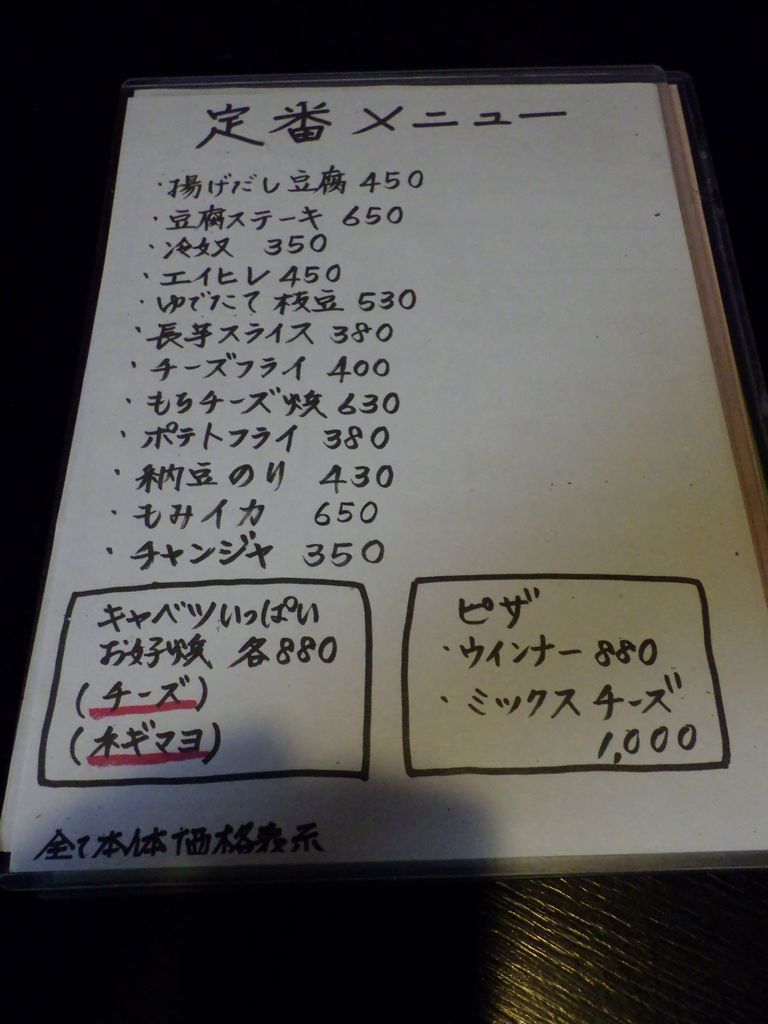 定番メニュー
・揚げだし豆腐 450
・豆腐ステーキ 650
・冷奴 350
・エイヒレ 450
・ゆでたて枝豆 530
・長芋スライス 380
・チーズフライ 400
・もちチーズ焼 630
・ポテトフライ 380
・納豆のり 430
・もみイカ 650
・チャンジャ 350
キャベツいっぱい
お好焼 各880
(チーズ)
(ネギマヨ)
ピザ
・ウインナー 880
・ミックスチーズ
1,000
全て本体価格表示